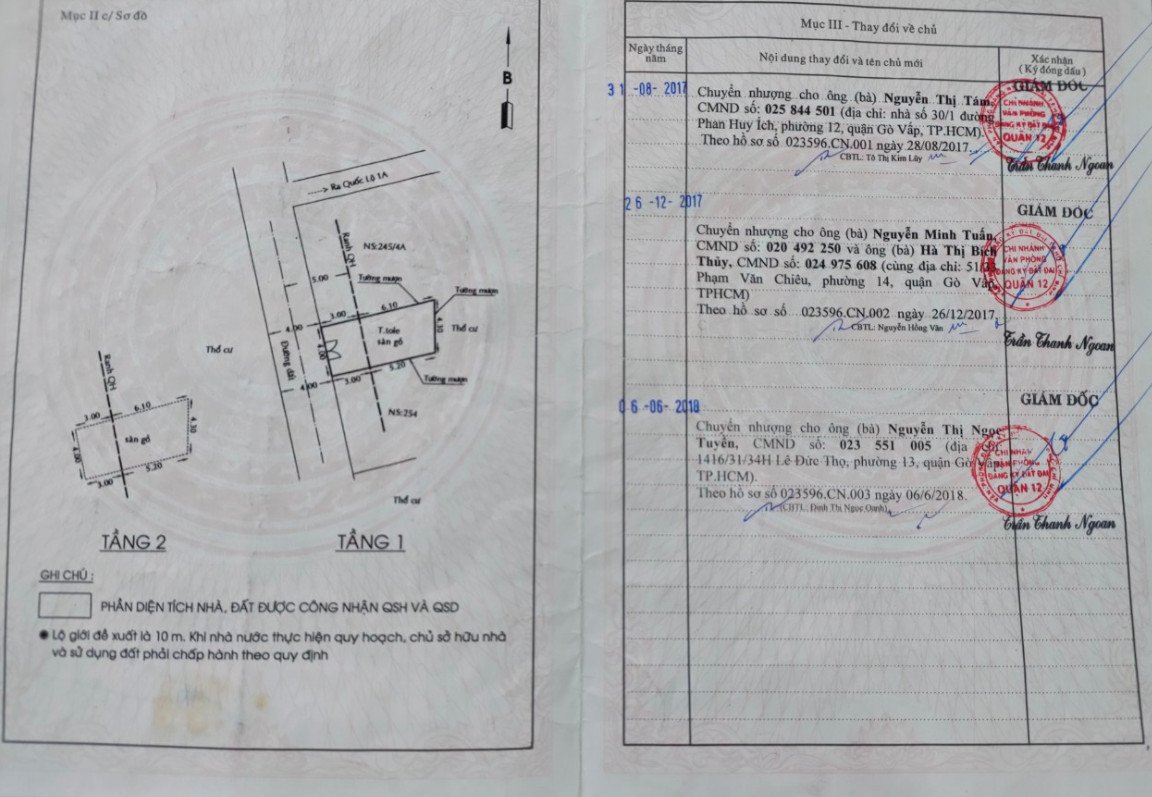 Mục II c/ Sơ đồ
B
Ra Quốc Lộ 1A
NS:245/4A
Ranh QH
5.00
Tường mượn
Tường mượn
3.00
6.10
4.00
4.30
T.tole
sàn gỗ
Thổ cư
Thổ cư
4.00
Đường đất
4.00
3.00
5.20
Tường mượn
NS:254
Thổ cư
Ranh QH
3.00
6.10
4.30
sàn gỗ
4.00
5.20
3.00
TẦNG 2
TẦNG 1
GHI CHÚ :
PHẦN DIỆN TÍCH NHÀ, ĐẤT ĐƯỢC CÔNG NHẬN QSH VÀ QSD
Lộ giới đề xuất là 10 m. Khi nhà nước thực hiện quy hoạch, chủ sở hữu nhà
và sử dụng đất phải chấp hành theo quy định
Mục III - Thay đổi về chủ
Ngày tháng
năm
Nội dung thay đổi và tên chủ mới
Xác nhận
( Ký đóng dấu )
31-08-2017
Chuyển nhượng cho ông (bà) Nguyễn Thị Tám,
CMND số: 025 844 501 (địa chỉ: nhà số 30/1 đường
Phan Huy Ích, phường 12, quận Gò Vấp, TP.HCM).
Theo hồ sơ số 023596.CN.001 ngày 28/08/2017.
CBTL: Tô Thị Kim Lũy
GIÁM ĐỐC
CHI NHÁNH
VĂN PHÒNG
ĐĂNG KÝ ĐẤT ĐAI
QUẬN 12
Trần Thanh Ngoan
26-12-2017
Chuyển nhượng cho ông (bà) Nguyễn Minh Tuấn,
CMND số: 020 492 250 và ông (bà) Hà Thị Bích
Thủy, CMND số: 024 975 608 (cùng địa chỉ:
Phạm Văn Chiêu, phường 14, quận Gò Vấp,
TPHCM)
Theo hồ sơ số 023596.CN.002 ngày 26/12/2017.
CBTL: Nguyễn Hồng Vân
GIÁM ĐỐC
CHI NHÁNH
VĂN PHÒNG
ĐĂNG KÝ ĐẤT ĐAI
QUẬN 12
Trần Thanh Ngoan
06-06-2018
Chuyển nhượng cho ông (bà) Nguyễn Thị Ngọc
Tuyển, CMND số: 023 551 005 (địa chỉ
1416/31/34H Lê Đức Thọ, phường 13, quận Gò Vấp
TP.HCM).
Theo hồ sơ số 023596.CN.003 ngày 06/6/2018.
(CBTL: Đinh Thị Ngọc Oanh)
GIÁM ĐỐC
CHI NHÁNH
VĂN PHÒNG
ĐĂNG KÝ ĐẤT ĐAI
QUẬN 12
Trần Thanh Ngoan